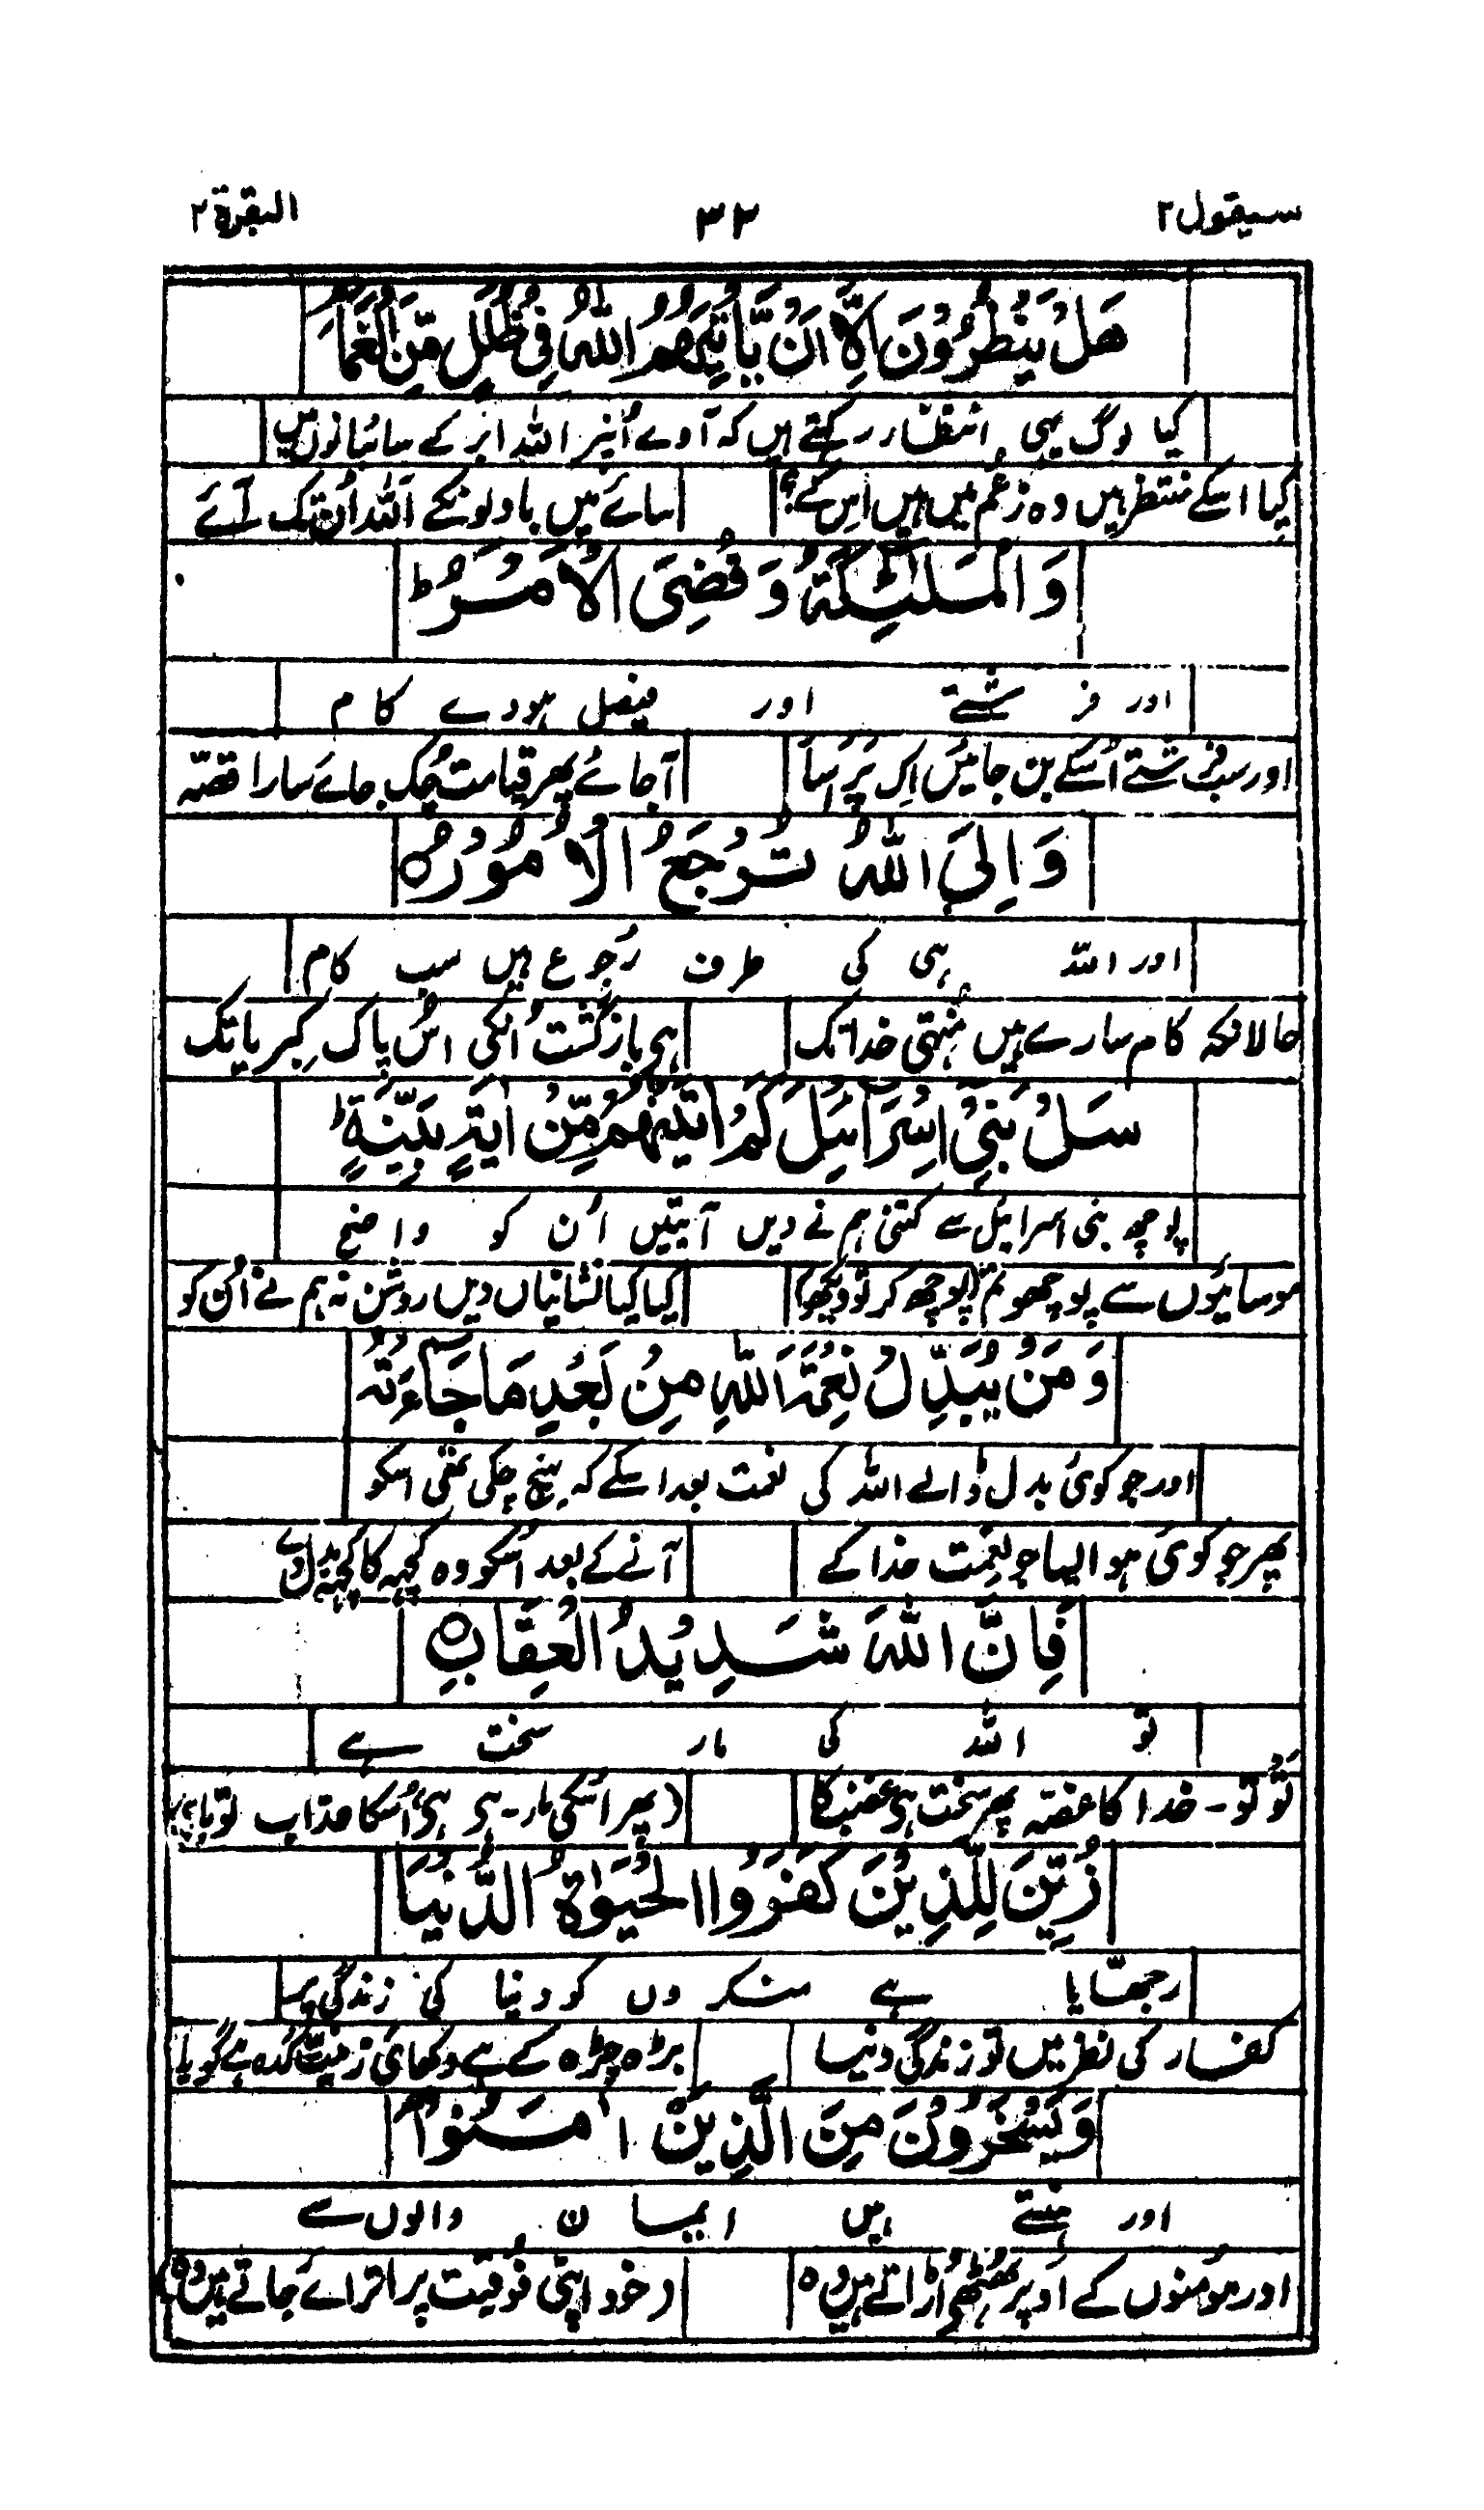 سیقول۲ ۳۳ البقرۃ۲
هَلْ يَنْظُرُوْنَ اِلَّاۤ اَنْ يَّاْتِيَهُمُ اللّٰهُ فِىْ ظُلَلٍ مِّنَ الْغَمَامِ
کیا لوگ یہی انتظار رکھتے ہیں کہ آوے اُنپر اللہ ابر کے سائبانوں میں
کیا اسکے منتظر ہیں وہ زعم میں ہیں اِس کے؟ سائے میں بادلونکے اللہ اُن تک آئے
وَالْمَلٰٓئِكَةُ وَقُضِىَ الْاَمْرُ ؕ
اور فرشتے اور فیصل ہووے کام
اور سب فرشتے اُسکے بن جائیں اِک پَر اَسا آجائے پھر قیامت چُک جائے سارا قصّہ
وَاِلَى اللّٰهِ تُرْجَعُ الْاُمُوْرُ ۝
اور اللہ ہی کی طرف رجوع ہیں سب کام
حالانکہ کام سارے ہیں منتہی خدا تک ہی بازگشت اُنکی اُس پاک کبریا تک
سَلْ بَنِىْۤ اِسْرَآءِيْلَ كَمْ اٰتَيْنٰهُمْ مِّنْ اٰيَةٍۢ بَيِّنَةٍ ؕ
پوچھ بنی اسرائیل سے کتنی ہم نے دیں آیتیں اُن کو واضح
موسائیوں سے پوچھو تم (پوچھ کر تو دیکھو) کیا کیا نشانیاں دیں روشن نہ ہم نے اُن کو
وَمَنْ يُّبَدِّلْ نِعْمَةَ اللّٰهِ مِنْۢ بَعْدِ مَا جَآءَتْهُ
اور جو کوئی بدل ڈالے اللہ کی نعمت بعد اسکے کہ پہنچ چکی تھی اسکو
پھر جو کوئی ہو ایسا جو نعمت خدا کے آنے کے بعد اُسکو وہ کچھ کا کچھ بدل دے
فَاِنَّ اللّٰهَ شَدِيْدُ الْعِقَابِ ۝
تو اللہ کی مار سخت ہے
تو تو۔ خدا کا غصّہ پھر سخت ہی غضبکا (پھر اُسکی مار۔ ہی ہی اُسکا عذاب توبا!)
زُيِّنَ لِلَّذِيْنَ كَفَرُوا الْحَيٰوةُ الدُّنْيَا
رجھایا ہے منکروں کو دنیا کی زندگی پر
کفار کی نظر میں تو زندگی دنیا بڑہ چڑہ کے ہے دکھائی زینت کدہ ہے گویا
وَيَسْخَرُوْنَ مِنَ الَّذِيْنَ اٰمَنُوْا ۘ
اور ہنستے ہیں ایمان والوں سے
اور مومنوں کے اوپر ٹھٹھے اُڑاتے ہیں وہ (خود اپنی فوقیت پر اترائے جاتے ہیں وہ)